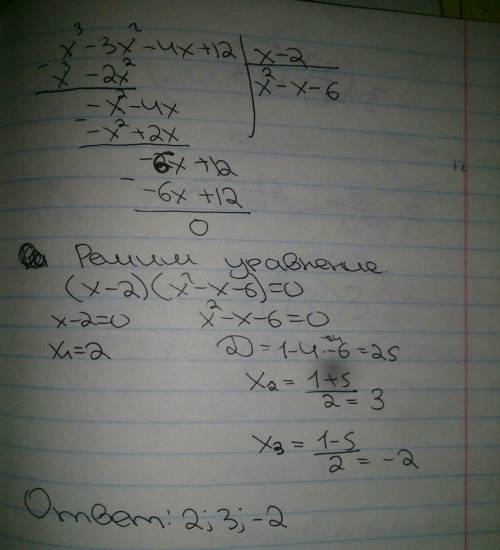 x³ - 3x² - 4x + 12 | x - 2
- x³ - 2x² | x² - x - 6
- x² - 4x
- - x² + 2x
- 6x + 12
- - 6x + 12
0
Решим уравнение.
(x - 2)(x² - x - 6) = 0
x - 2 = 0 x² - x - 6 = 0
x₁ = 2 D = 1 - 4 · - 6 = 25
x₂ = 1 + 5 / 2 = 3
x₃ = 1 - 5 / 2 = - 2
Ответ: 2; 3; -2